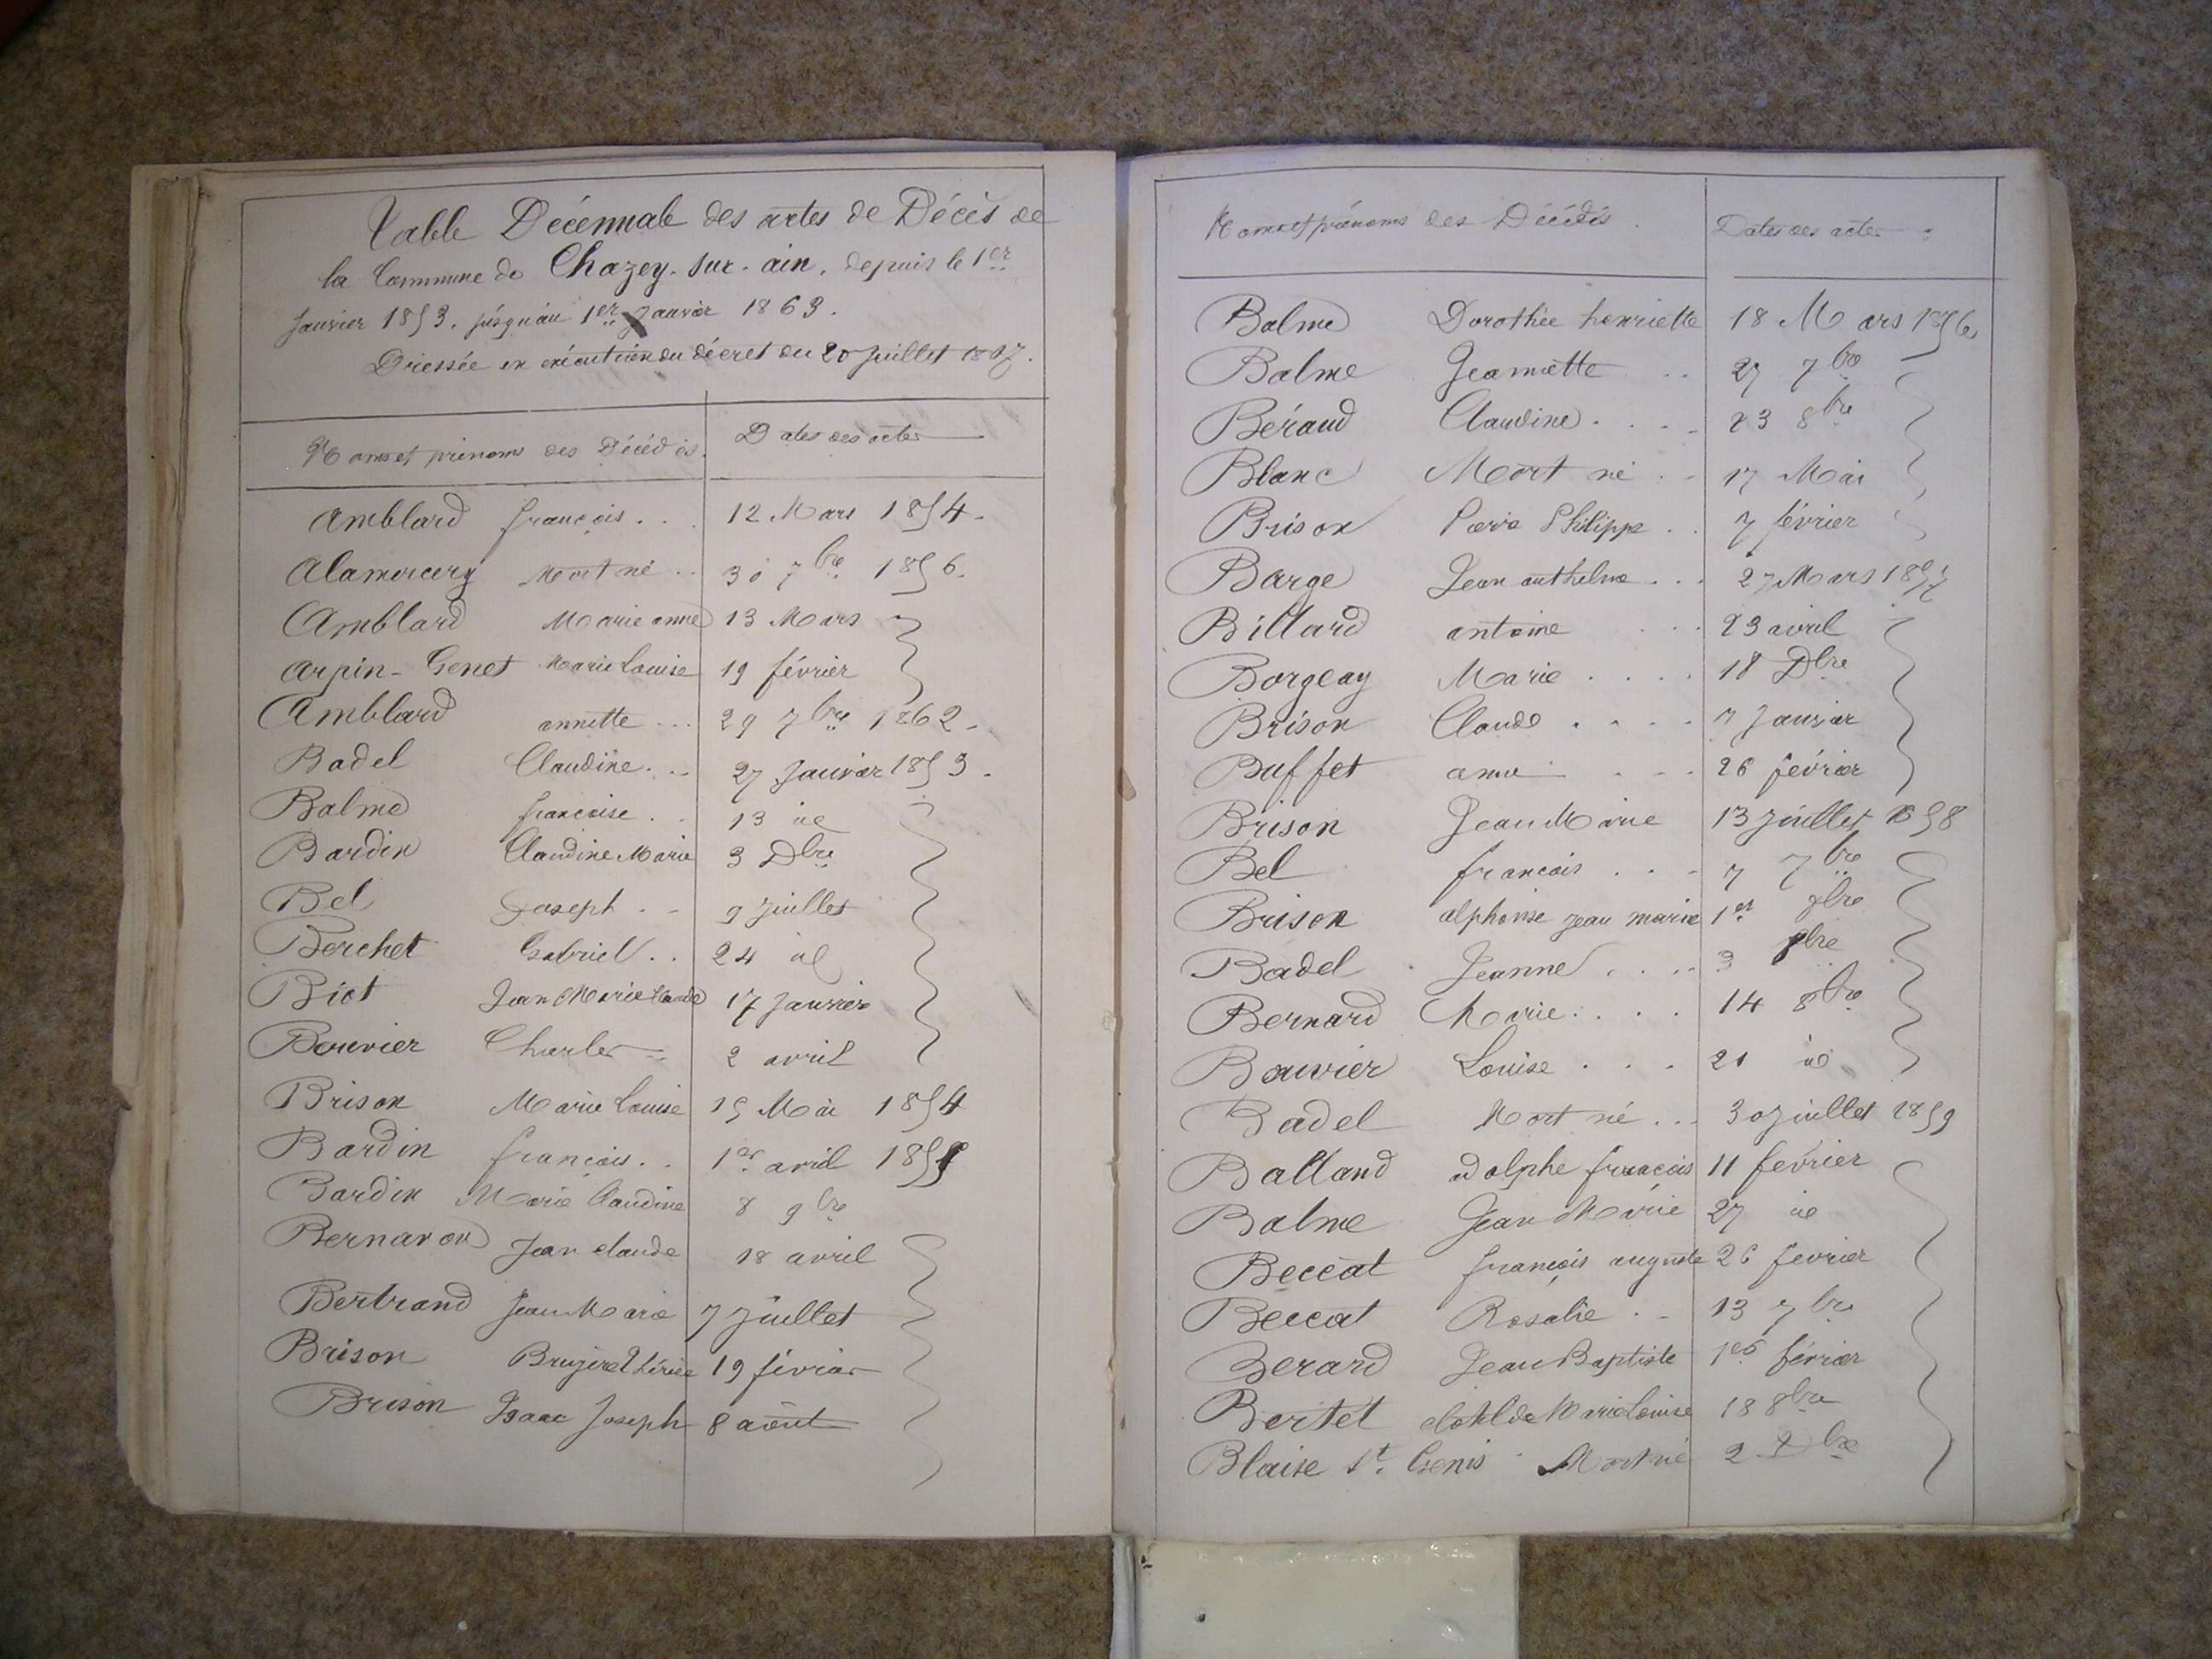 Table Décennale des actes de Décès de
la Commune de Chazey-sur-ain, depuis le 1er
Janvier 1853. jusqu'au 1er Janvier 1863.
Dressée en exécution du décret du 20 Juillet 1807.
Noms et prénoms des Décédés. Dates des actes
Amblard françois . . . 12 Mars 1854.
Alamercery Mort né . . 30 7bre 1856.
Amblard Marie anne 13 Mars
Arpin-Genet Marie Louise 19 février
Amblard annette ... 29 7bre 1862
Badel Claudine . . . 27 Janvier 1853.
Balme francoise . . 13 id
Bardin Claudine Marie 3 Dbre
Bel Joseph . . 9 Juillet
Berchet Gabriel . . 24 id
Biot Jean Marie Claude 17 Janvier
Bouvier Charles 2 avril
Brison Marie Louise 15 Mai 1854
Bardin françois . . 1er avril 1855
Bardin Marie Claudine 8 9bre
Bernaron Jean claude 18 avril
Bertrand Jean Marie 7 Juillet
Brison 19 février
Brison Isaac Joseph 8 août
Noms et prénoms des Décédés. Dates des actes
Balme Dorothée henriette 18 Mars 1856
Balme Jeannette . . 27 7bre
Béraud Claudine . . . . 23 8bre
Blanc Mort né . . 17 Mai
Brison Pierre Philippe . . 7 février
Barge Jean anthelme . . . 27 Mars 1857
Billard antoine . . . 23 avril
Borgeay Marie . . . . 18 Dbre
Brison Claude . . . . 7 Janvier
Buffet anne . . . 26 février
Brison Jean Marie 13 Juillet 1858
Bel francois . . . 7 7bre
Brison alphonse jean marie 1er
Badel Jeanne . . . . 3
Bernard Marie . . . . 14 8bre
Bouvier Louise . . . 21 id
Badel Mort né . . . 30 Juillet 1859
Balland adolphe françois 11 fevrier
Balme Jean Marie 27 id
Beccat françois auguste 26 fevrier
Beccat Rosalie . . 13 7bre
Berard Jean Baptiste 1er février
Bertet clotilde Marie Louise 18 8bre
Blaise St. Genis Mort né 2 Dbre